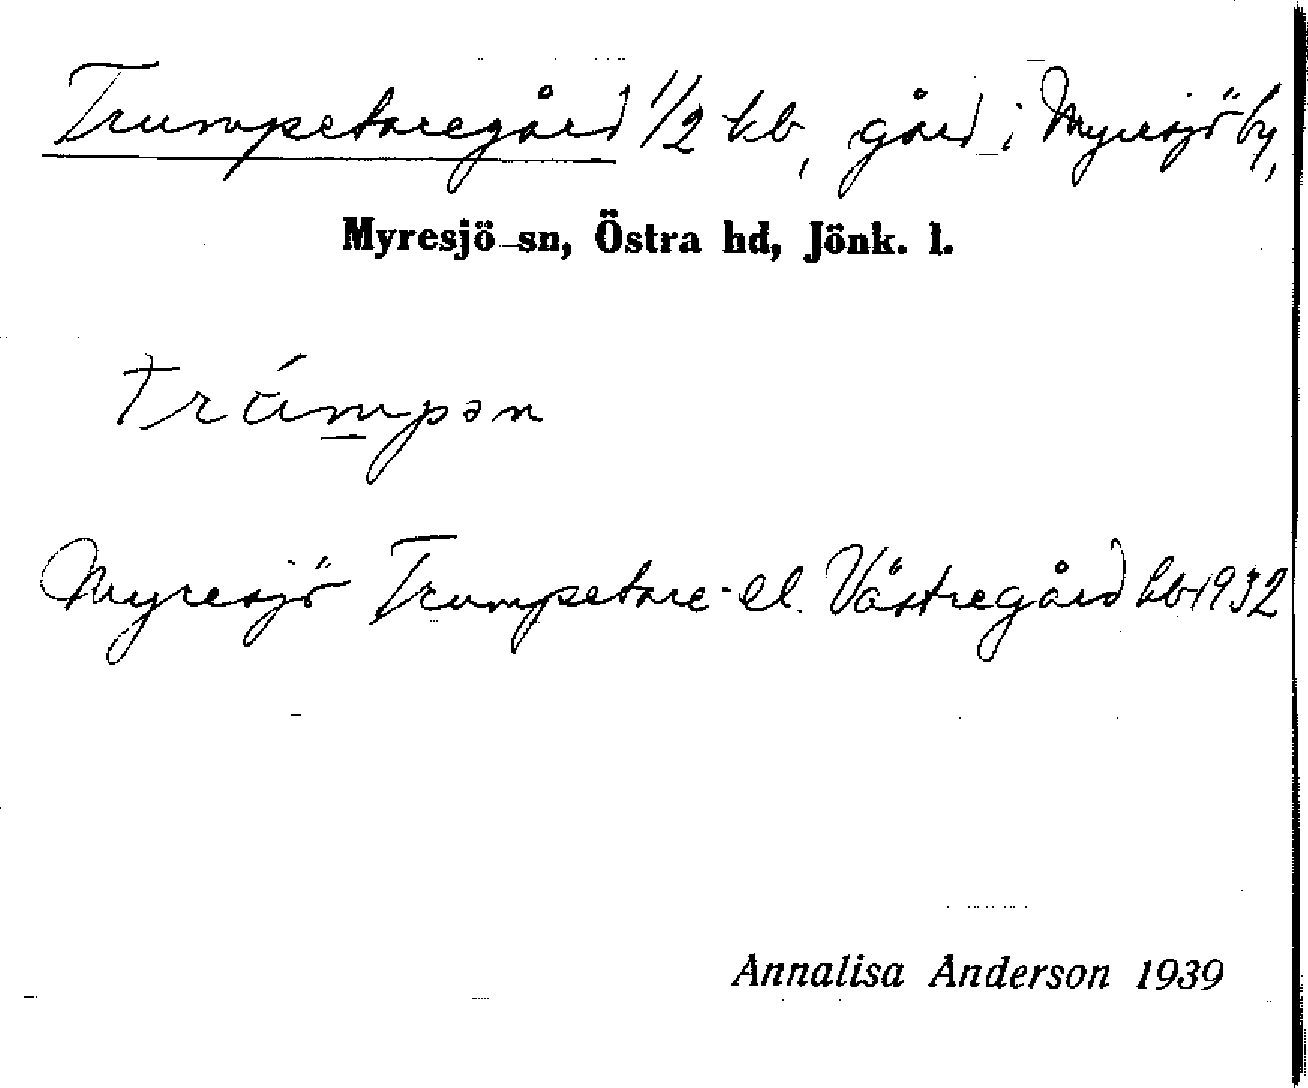 Trumpetaregård 1/2 hb, gård i Myresjö by,
Myresjö sn, Östra hd, Jönk. l.
Myresjö Trumpetare- el. Västregård hb 1932
Annalisa Anderson 1939